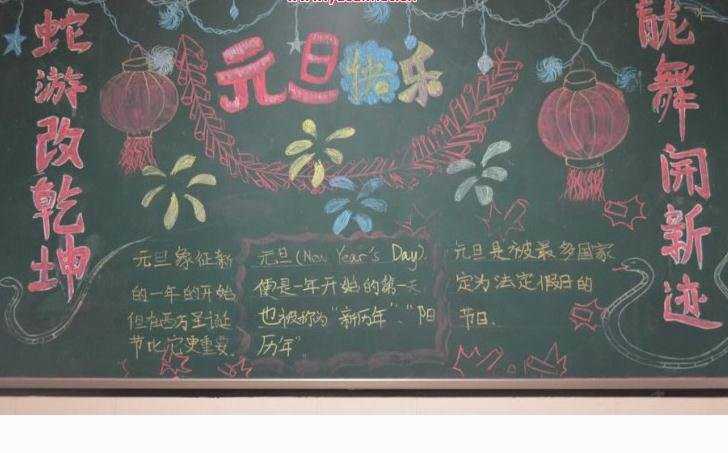 元旦快乐
蛇游改乾坤
舞开新迹
元旦象征新
的一年的开始
但在西方圣诞
节比它更重要.
元旦(New Year's Day).
便是一年开始的第一天
也被称为“新历年”、“阳
历年”
元旦是被最多国家
定为法定假日的
节日.